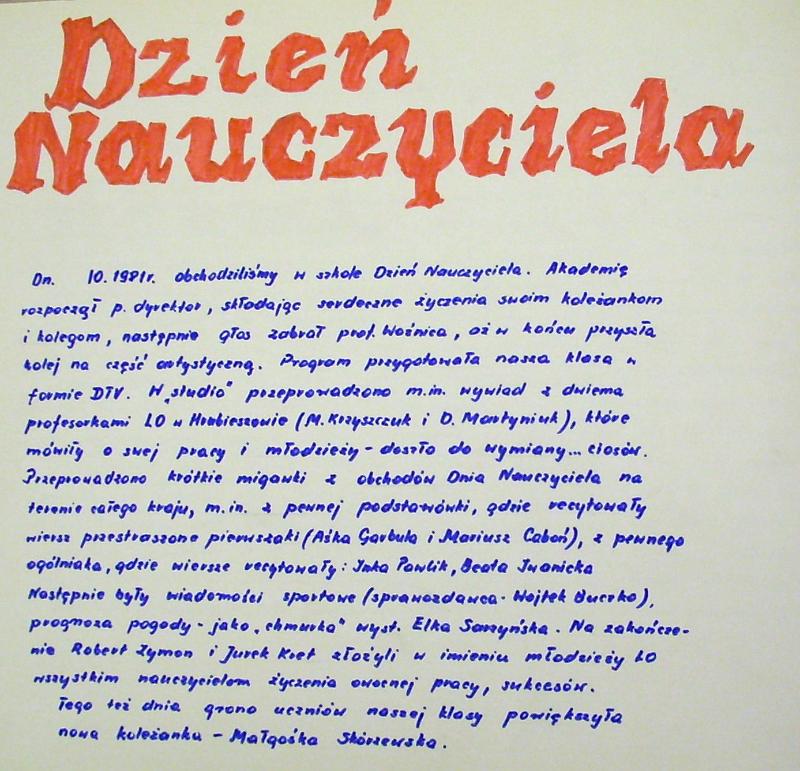 Dzień
Nauczyciela
Dn. 10.1981r. obchodziliśmy w szkole Dzień Nauczyciela. Akademię
rozpoczął p. dyrektor, składając serdeczne życzenia swoim koleżankom
i kolegom, następnie głos zabrał prof. Woźnica, aż w końcu przyszła
kolej na część artystyczną. Program przygotowała nasza klasa w
formie DTV. W „studio" przeprowadzono m.in. wywiad z dwiema
profesorkami LO w Hrubieszowie (M. Krzyszczuk i D. Martyniuk), które
mówiły o swej pracy i młodzieży - doszło do wymiany... ciosów.
Przeprowadzono krótkie migawki z obchodów Dnia Nauczyciela na
terenie całego kraju, m.in. z pewnej podstawówki, gdzie recytowały
wiersz przestraszone pierwszaki (Aśka Garbula i Mariusz Caboń), z pewnego
ogólniaka, gdzie wiersze recytowały: Inka Pawlik, Beata Iwanicka
Następnie były wiadomości sportowe (sprawozdawca - Wojtek Buczko),
prognoza pogody - jako „chmurka" wyst. Elka Sarzyńska. Na zakończe-
nie Robert Zymon i Jurek Kret złożyli w imieniu młodzieży LO
wszystkim nauczycielom życzenia owocnej pracy, sukcesów.
Tego też dnia grono uczniów naszej klasy powiększyła
nowa koleżanka - Małgośka Skórzewska.